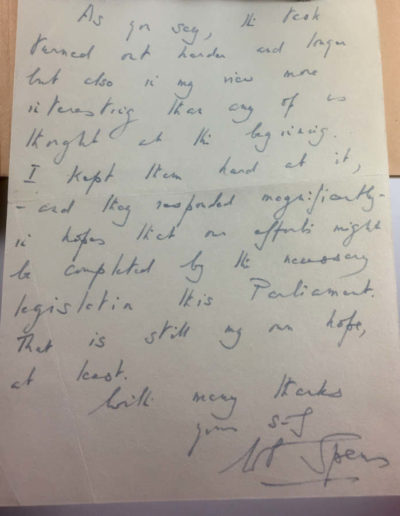 As you say, the task
turned out harder and longer
but also in my view more
interesting than any of us
thought at the beginning.
I kept them hard at it,
- and they responded magnificently -
in hopes that our efforts might
be completed by the necessary
legislation this Parliament.
That is still my own hope,
at least.
With many thanks
yours
Spens